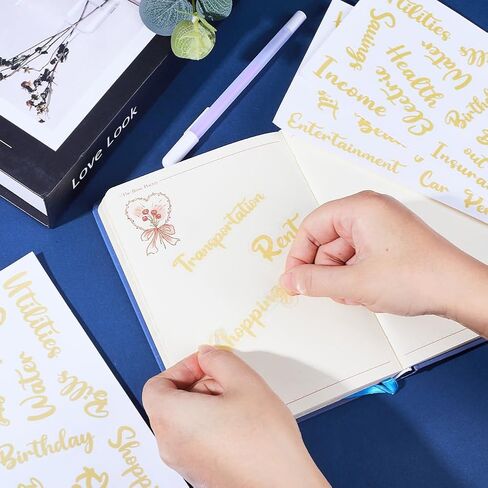 Love Look
Transportation
Rent
Shopping
Utilities
Savings
Water
Bills
Health
Income
Electric
Gift
Birthday
Entertainment
Insurance
out
Car
Utilities
Water
Bills
Birthday
Shopping